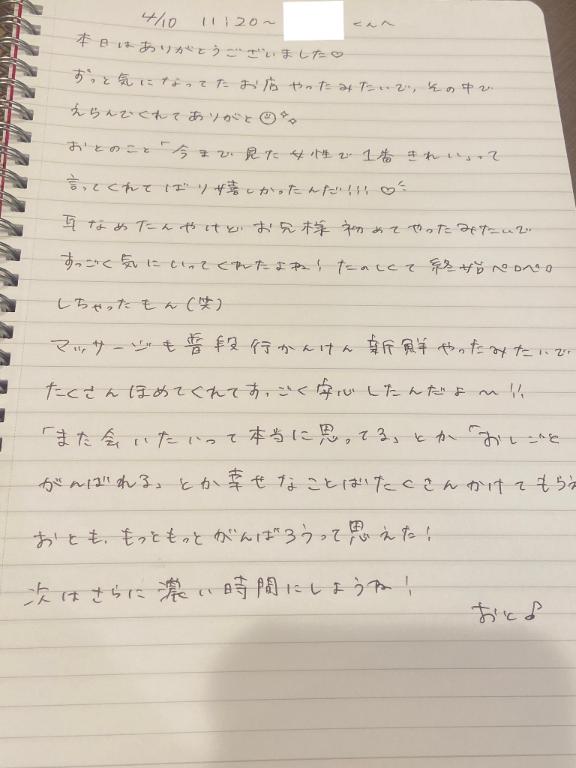 4/10 11:20〜 くんへ
本日はありがとうございました♡
ずっと気になってたお店やったみたいで、その中で
えらんでくれてありがと☺✨
おとのこと「今まで見た女性で1番きれい」って
言ってくれてばり嬉しかったんだ!!!♡
耳なめたんやけどお兄様初めてやったみたいで
すっごく気にいってくれたよね!たのしくて終始ペロペロ
しちゃったもん(笑)
マッサージも普段行かんけん新鮮やったみたいで
たくさんほめてくれてすっごく安心したんだよ〜!!
「また会いたいって本当に思ってる」とか「おしごと
がんばれる」とか幸せなことばたくさんかけてもらえ
おとも、もっともっとがんばろうって思えた!
次はさらに濃い時間にしようね!
おと♪